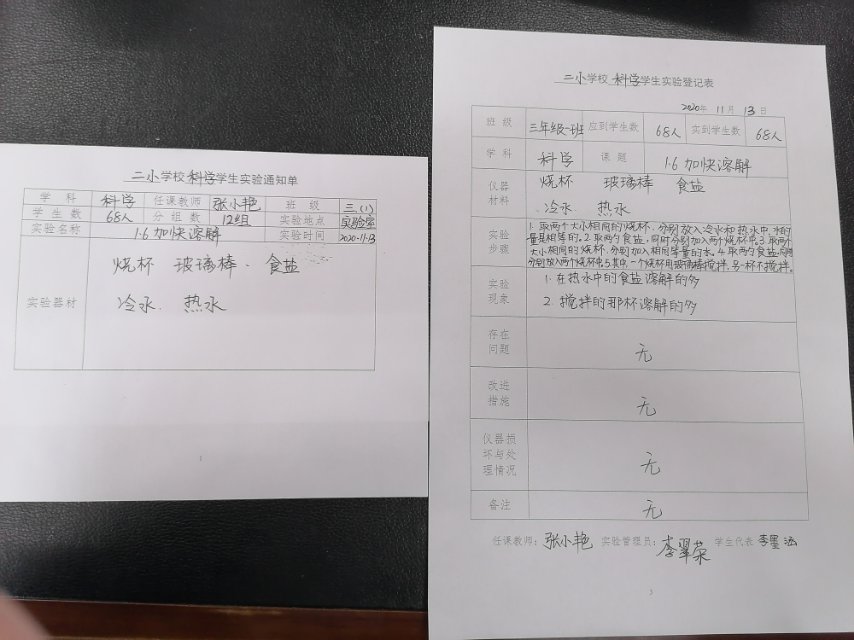 二小学校科学学生实验通知单
学科 科学 任课教师 张小艳 班级 三.(1)
学生数 68人 分组数 12组 实验地点 实验室
实验名称 1·6 加快溶解 实验时间 2020-11-13
实验器材
烧杯 玻璃棒 食盐
冷水 热水
1
二小学校科学学生实验登记表
2020年 11月 13日
班级 三年级一班 应到学生数 68人 实到学生数 68人
学科 科学 课题 1·6 加快溶解
仪器材料
烧杯 玻璃棒 食盐
冷水 热水
实验步骤
1.取两个大小相同的烧杯,分别放入冷水和热水中,水的
量是相等的。2.取两勺食盐,同时分别加入两个烧杯中。3.取两个
大小相同的烧杯,分别加入相同等量的水。4.取两勺食盐,
分别放入两个烧杯中。5.其中一个烧杯用玻璃棒搅拌,另一杯不搅拌。
实验现象
1.在热水中的食盐溶解的多
2.搅拌的那杯溶解的多
存在问题 无
改进措施 无
仪器损坏与处理情况 无
备注 无
任课教师:张小艳 实验管理员:李翠荣 学生代表 李墨涵
3